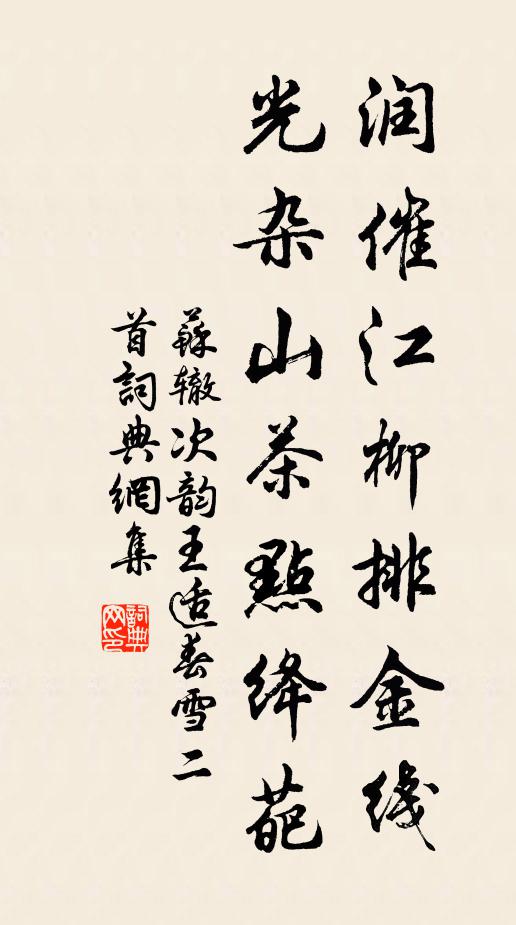 润催江柳排金线
光杂山茶點绛葩
蘇辙次韵王适春雪二
首詞典網集
詞典
网印